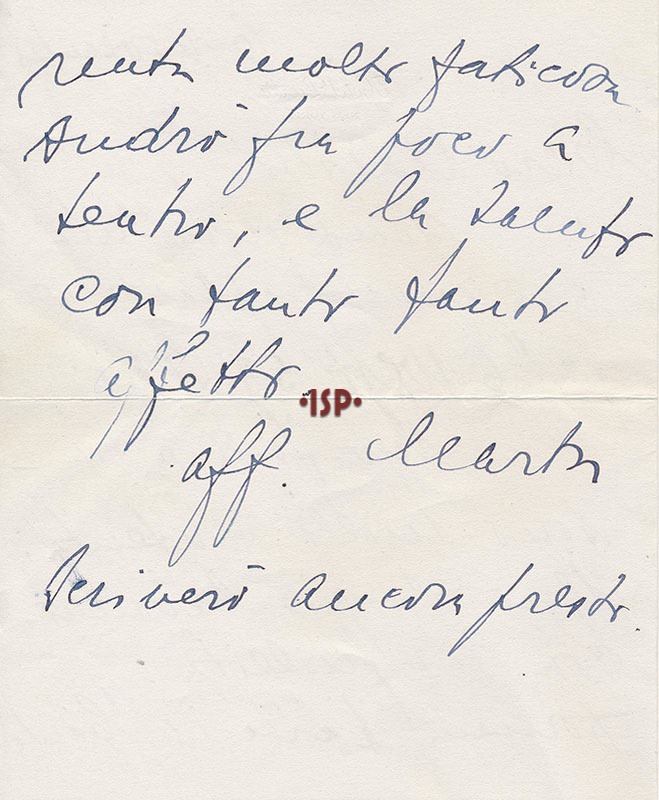 molto faticosa
Andrò fra poco a
teatro, e la saluto
con tanto tanto
affetto
•ISP•
aff. Marta
Scriverò ancora presto.